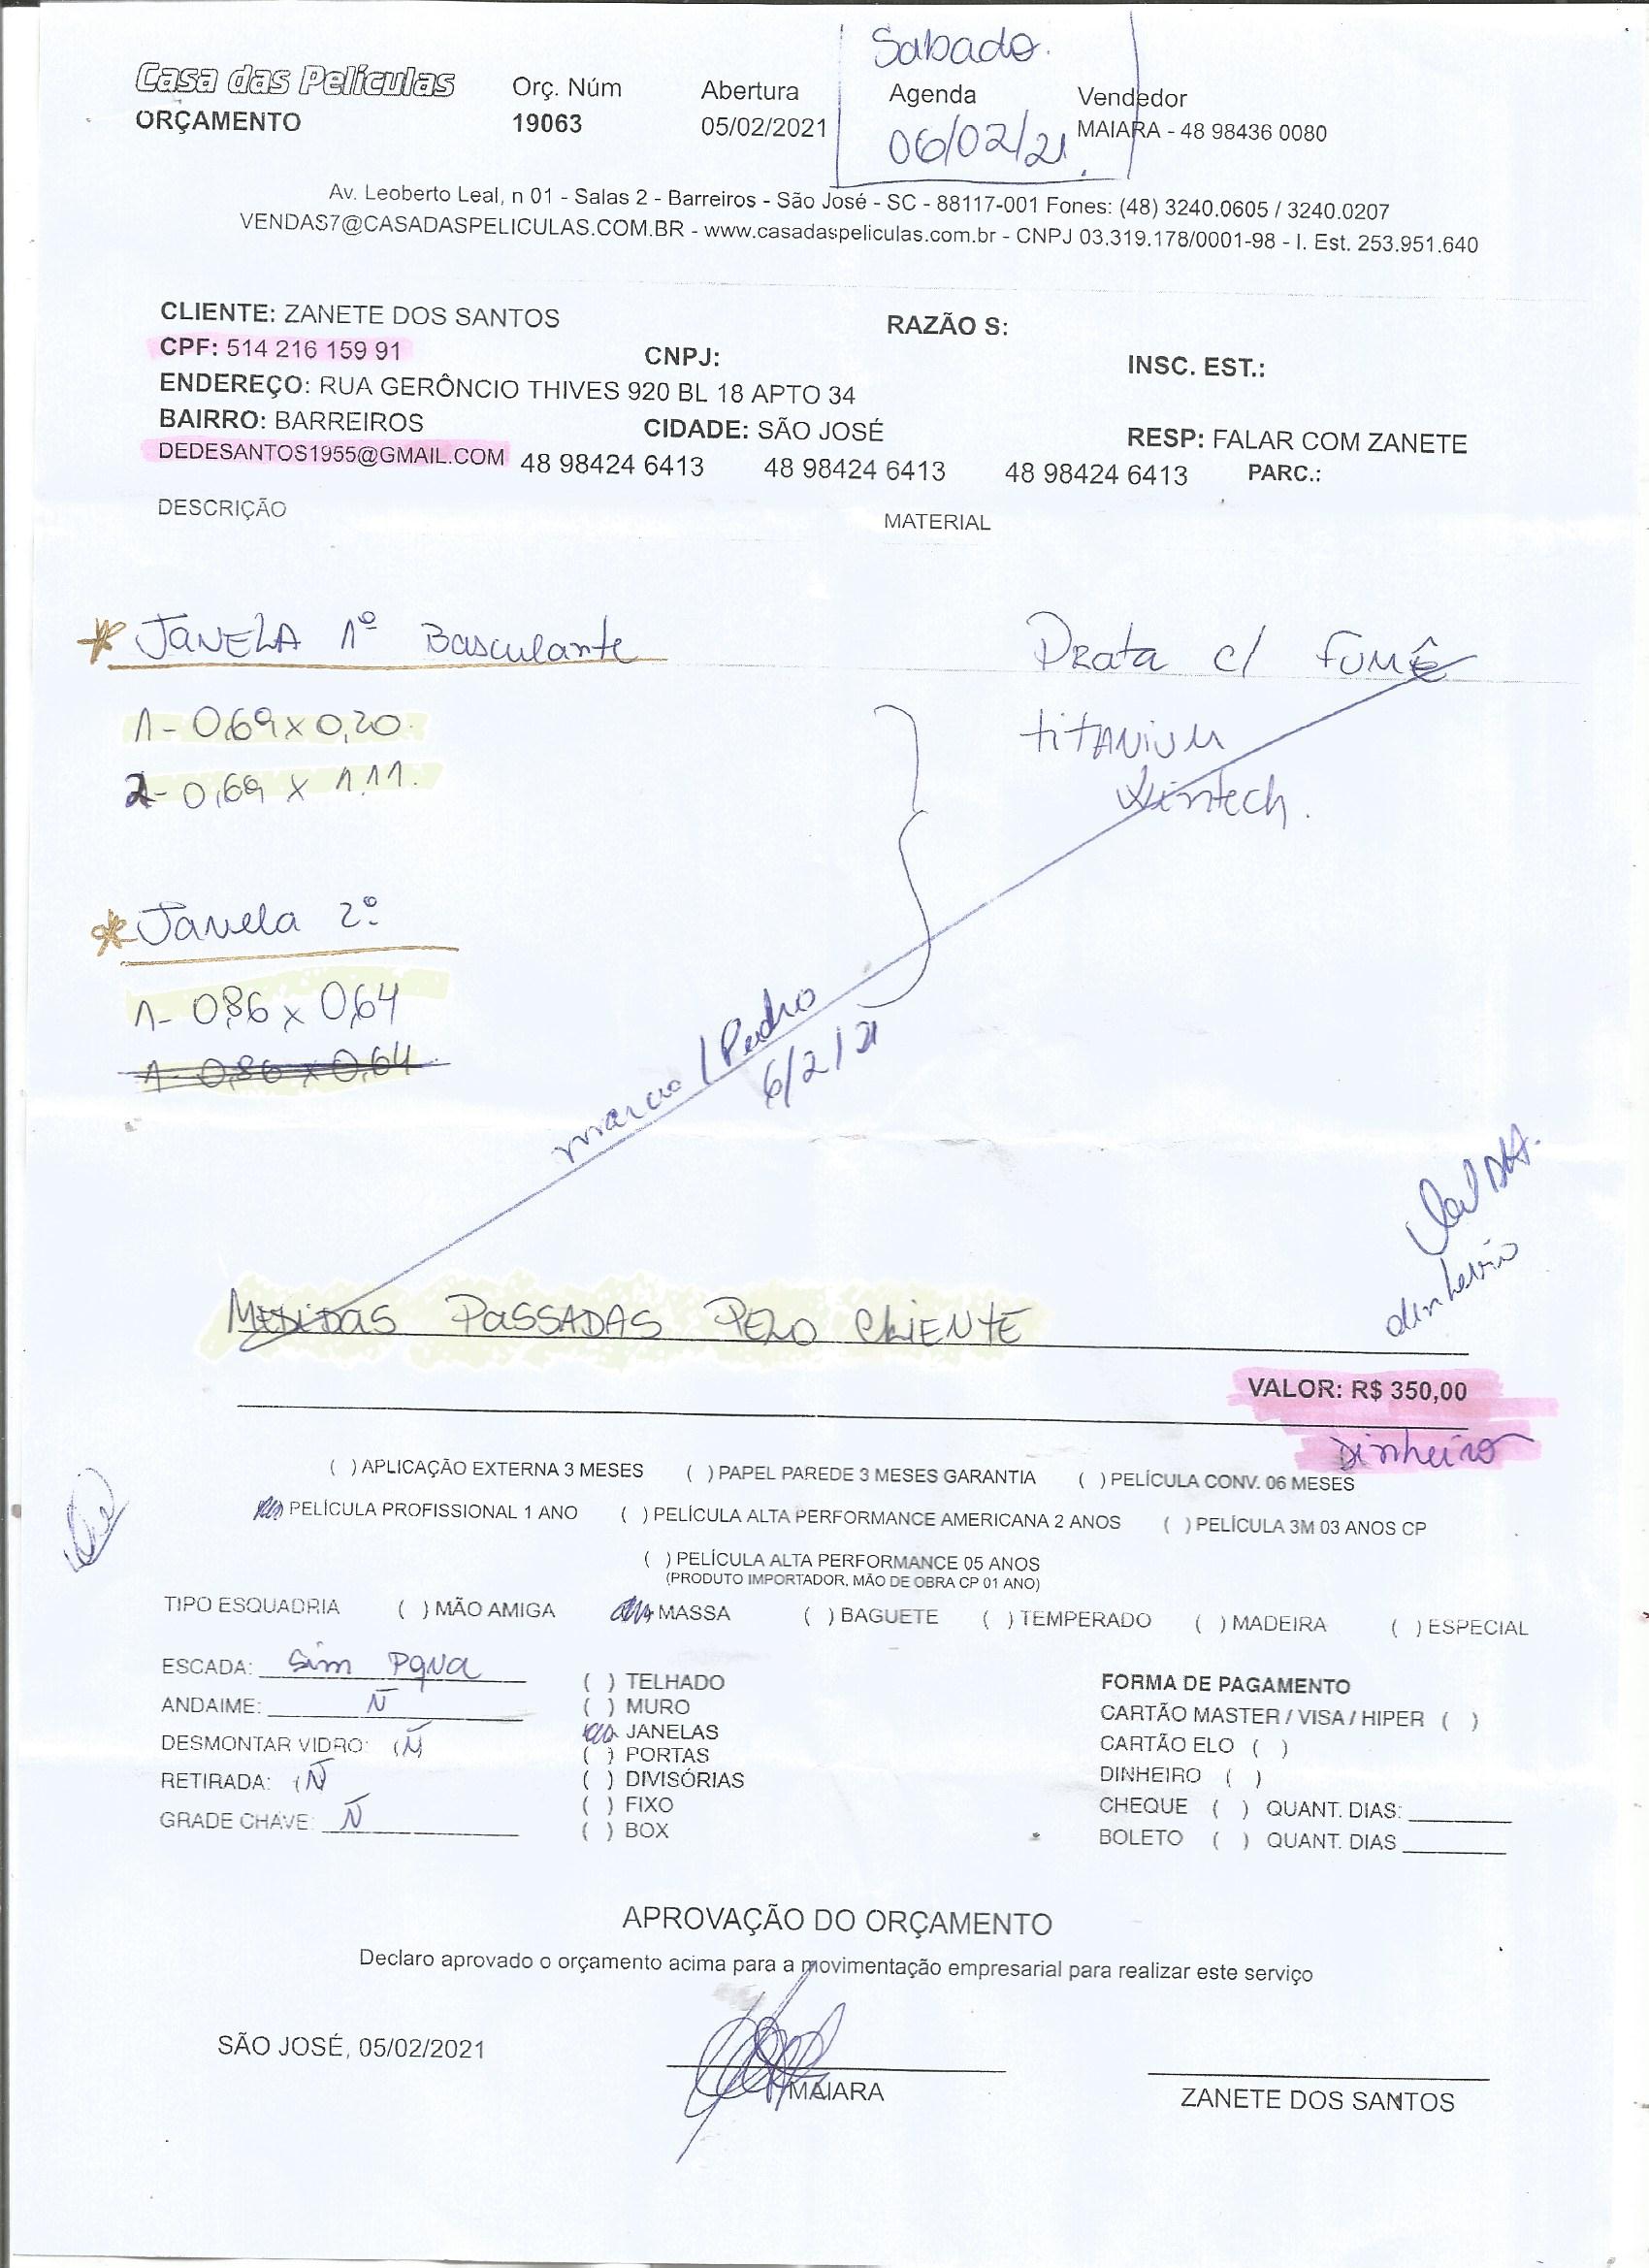 Sabado.
Casa das Películas Orç. Núm Abertura Agenda Vendedor
ORÇAMENTO 19063 05/02/2021 06/02/21. MAIARA - 48 98436 0080
Av. Leoberto Leal, n 01 - Salas 2 - Barreiros - São José - SC - 88117-001 Fones: (48) 3240.0605 / 3240.0207
VENDAS7@CASADASPELICULAS.COM.BR - www.casadaspeliculas.com.br - CNPJ 03.319.178/0001-98 - I. Est. 253.951.640
CLIENTE: ZANETE DOS SANTOS RAZÃO S:
CPF: 514 216 159 91 CNPJ: INSC. EST.:
ENDEREÇO: RUA GERÔNCIO THIVES 920 BL 18 APTO 34
BAIRRO: BARREIROS CIDADE: SÃO JOSÉ RESP: FALAR COM ZANETE
DEDESANTOS1955@GMAIL.COM 48 98424 6413 48 98424 6413 48 98424 6413 PARC.:
DESCRIÇÃO MATERIAL
* JANELA 1º Basculante Prata c/ FUMÊ
1- 0,69 x 0,20 titANiUM
2- 0,69 x 1.11. Wintech.
* Janela 2º
1- 0,86 x 0,64
1- 0,86 x 0,64
marcio / Pedro
6/2/21
dinheiro
MEDIDAS PASSADAS PELO CLIENTE
VALOR: R$ 350,00
Dinheiro
( ) APLICAÇÃO EXTERNA 3 MESES ( ) PAPEL PAREDE 3 MESES GARANTIA ( ) PELÍCULA CONV. 06 MESES
PELÍCULA PROFISSIONAL 1 ANO ( ) PELÍCULA ALTA PERFORMANCE AMERICANA 2 ANOS ( ) PELÍCULA 3M 03 ANOS CP
( ) PELÍCULA ALTA PERFORMANCE 05 ANOS
(PRODUTO IMPORTADOR, MÃO DE OBRA CP 01 ANO)
TIPO ESQUADRIA ( ) MÃO AMIGA MASSA ( ) BAGUETE ( ) TEMPERADO ( ) MADEIRA ( ) ESPECIAL
ESCADA: Sim Pqna ( ) TELHADO FORMA DE PAGAMENTO
ANDAIME: Ñ ( ) MURO CARTÃO MASTER / VISA / HIPER ( )
DESMONTAR VIDRO: (Ñ) JANELAS CARTÃO ELO ( )
( ) PORTAS
RETIRADA: (Ñ ( ) DIVISÓRIAS DINHEIRO ( )
GRADE CHAVE: Ñ ( ) FIXO CHEQUE ( ) QUANT. DIAS:
( ) BOX BOLETO ( ) QUANT. DIAS
APROVAÇÃO DO ORÇAMENTO
Declaro aprovado o orçamento acima para a movimentação empresarial para realizar este serviço
SÃO JOSÉ, 05/02/2021
MAIARA ZANETE DOS SANTOS